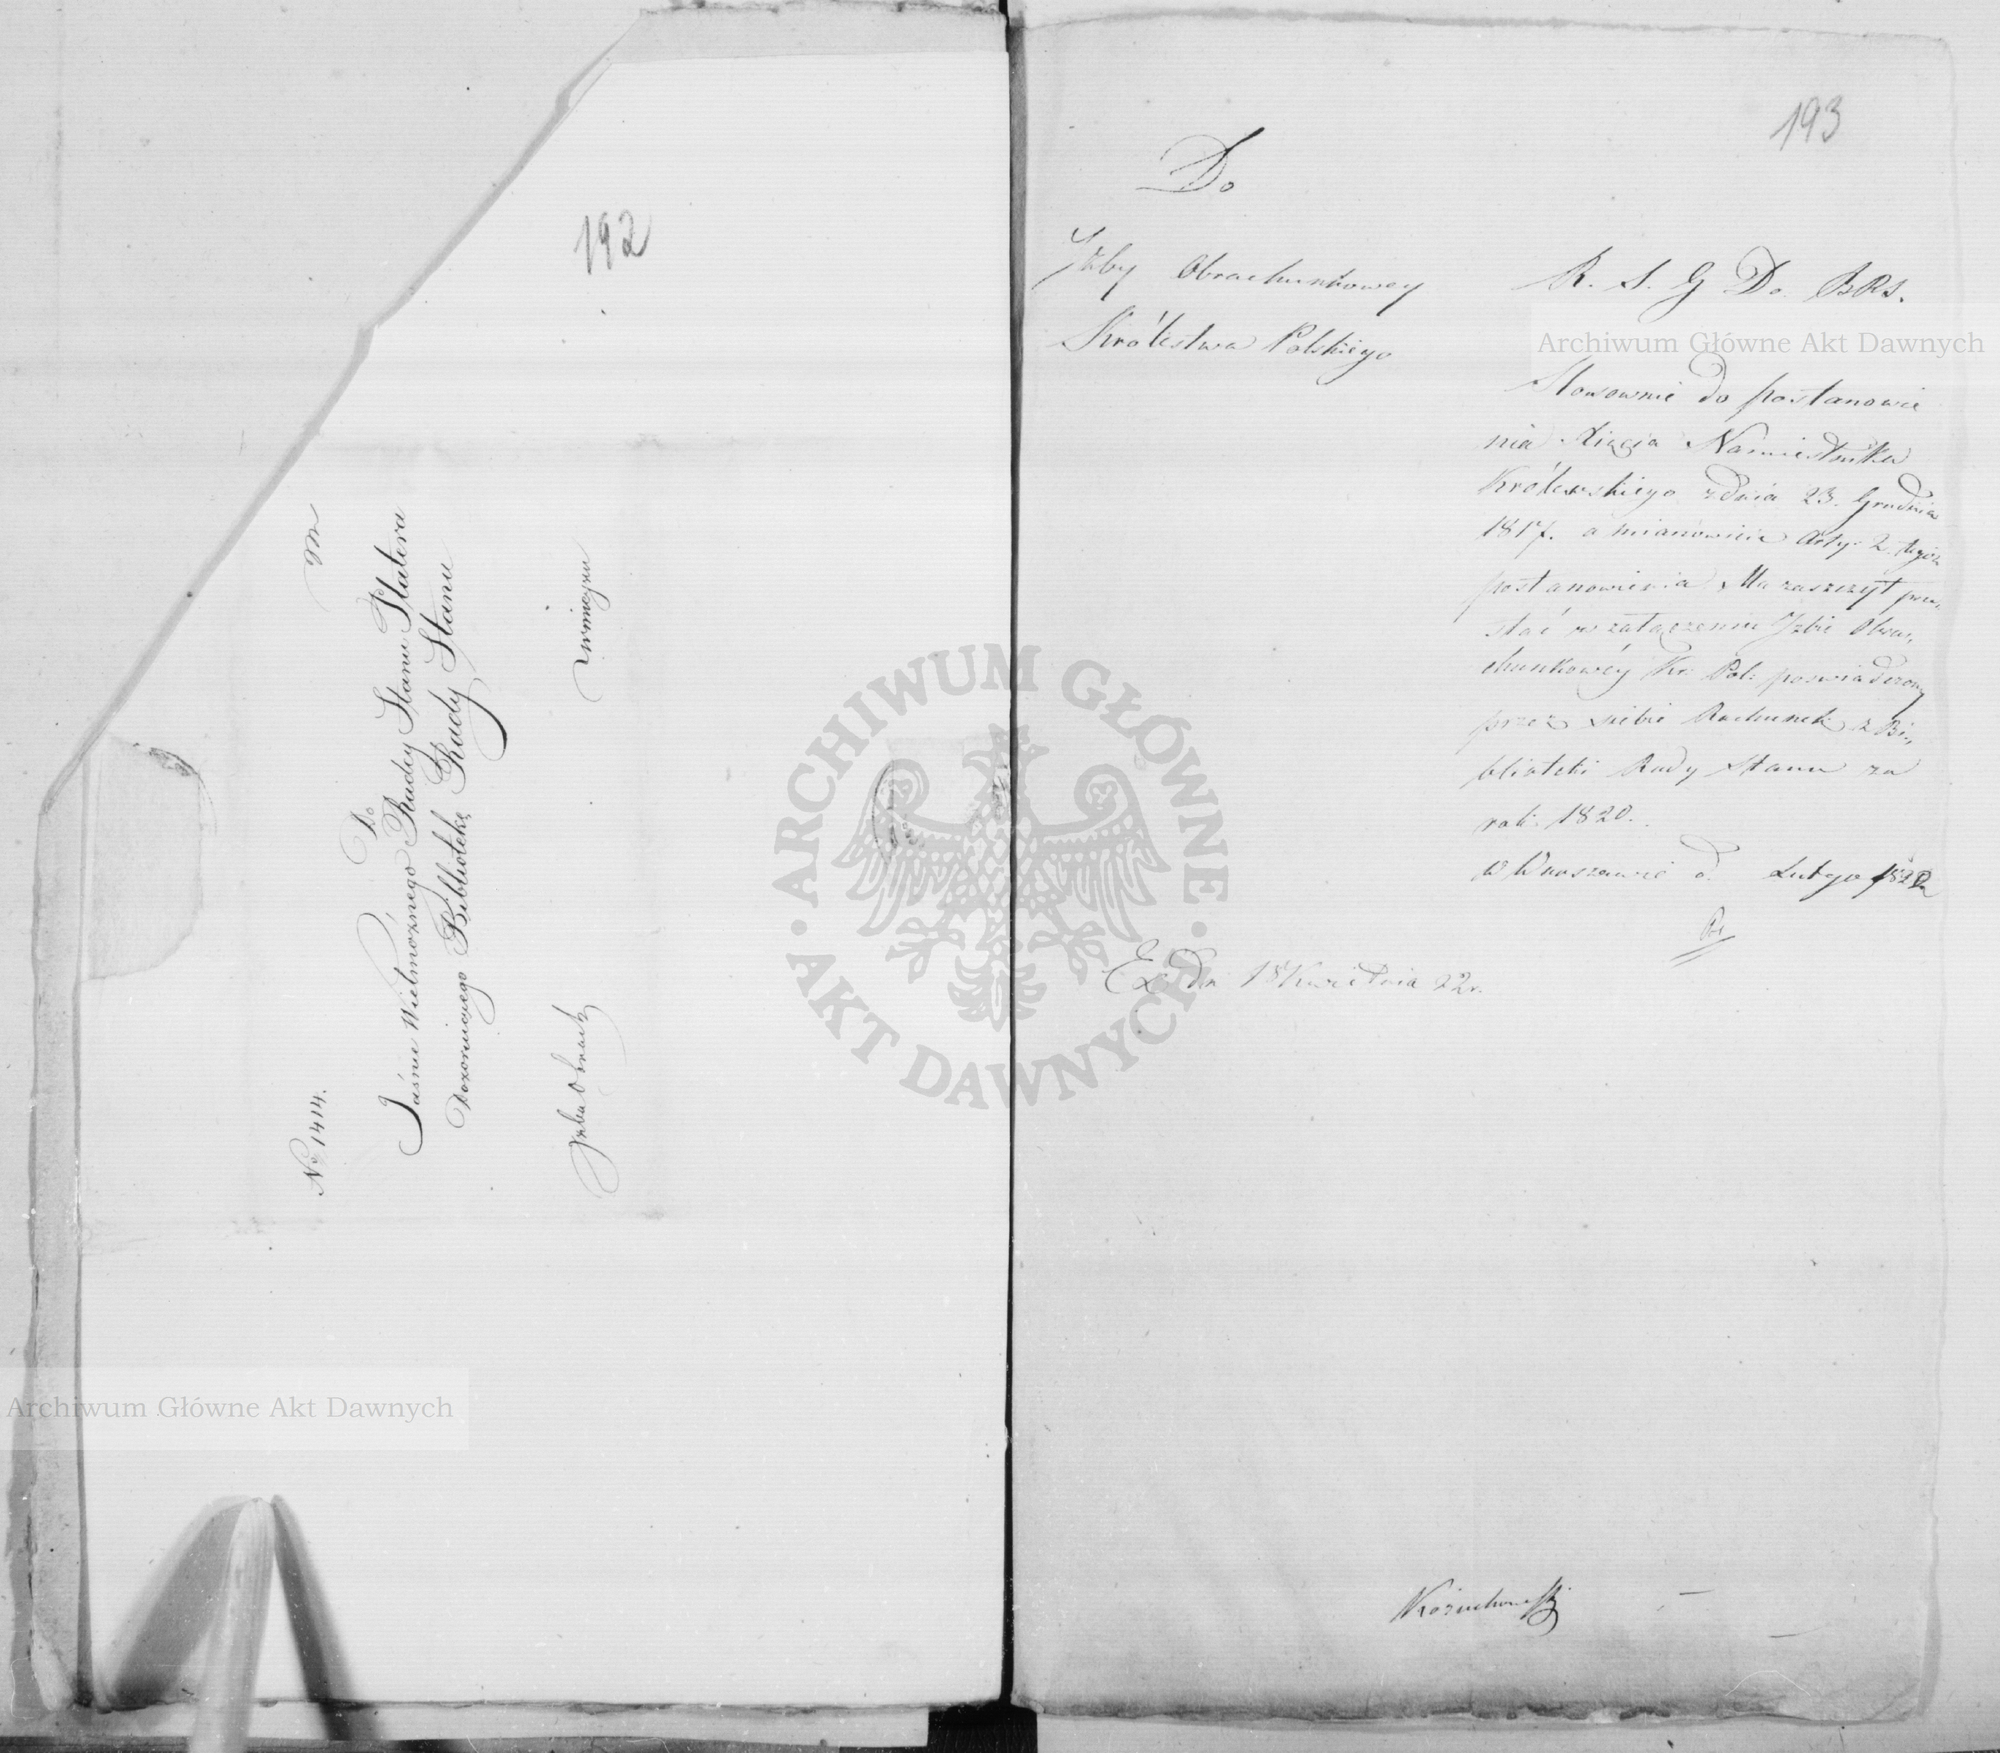 192
№ 1414.
Do
Jaśnie Wielmożnego Radcy Stanu Platera
Dozoruiącego Bibliotekę Rady Stanu
Jzba Obrach
193
Do
Jzby Obrachunkowey
Królestwa Polskiego
R. S. G Do. BRS.
Stosownie do postanowie
nia Xięcia Namiestnika
Królewskiego z dnia 23. Grudnia
1817. a mianowicie Arty: 2. tegóż
postanowienia Ma zaszczyt prze,
słać w załączeniu Jzbie Obra,
chunkowéy Kr: Pol: poswiadczony
przez siebie Rachunek z Bi,,
blioteki Rady Stanu za
rok 1820.
w Warszawie d. Lutego
Ex Dn 18 Kwietnia 22r.
Kożuchowski
Archiwum Główne Akt Dawnych
Archiwum Główne Akt Dawnych
ARCHIWUM GŁÓWNE AKT DAWNYCH